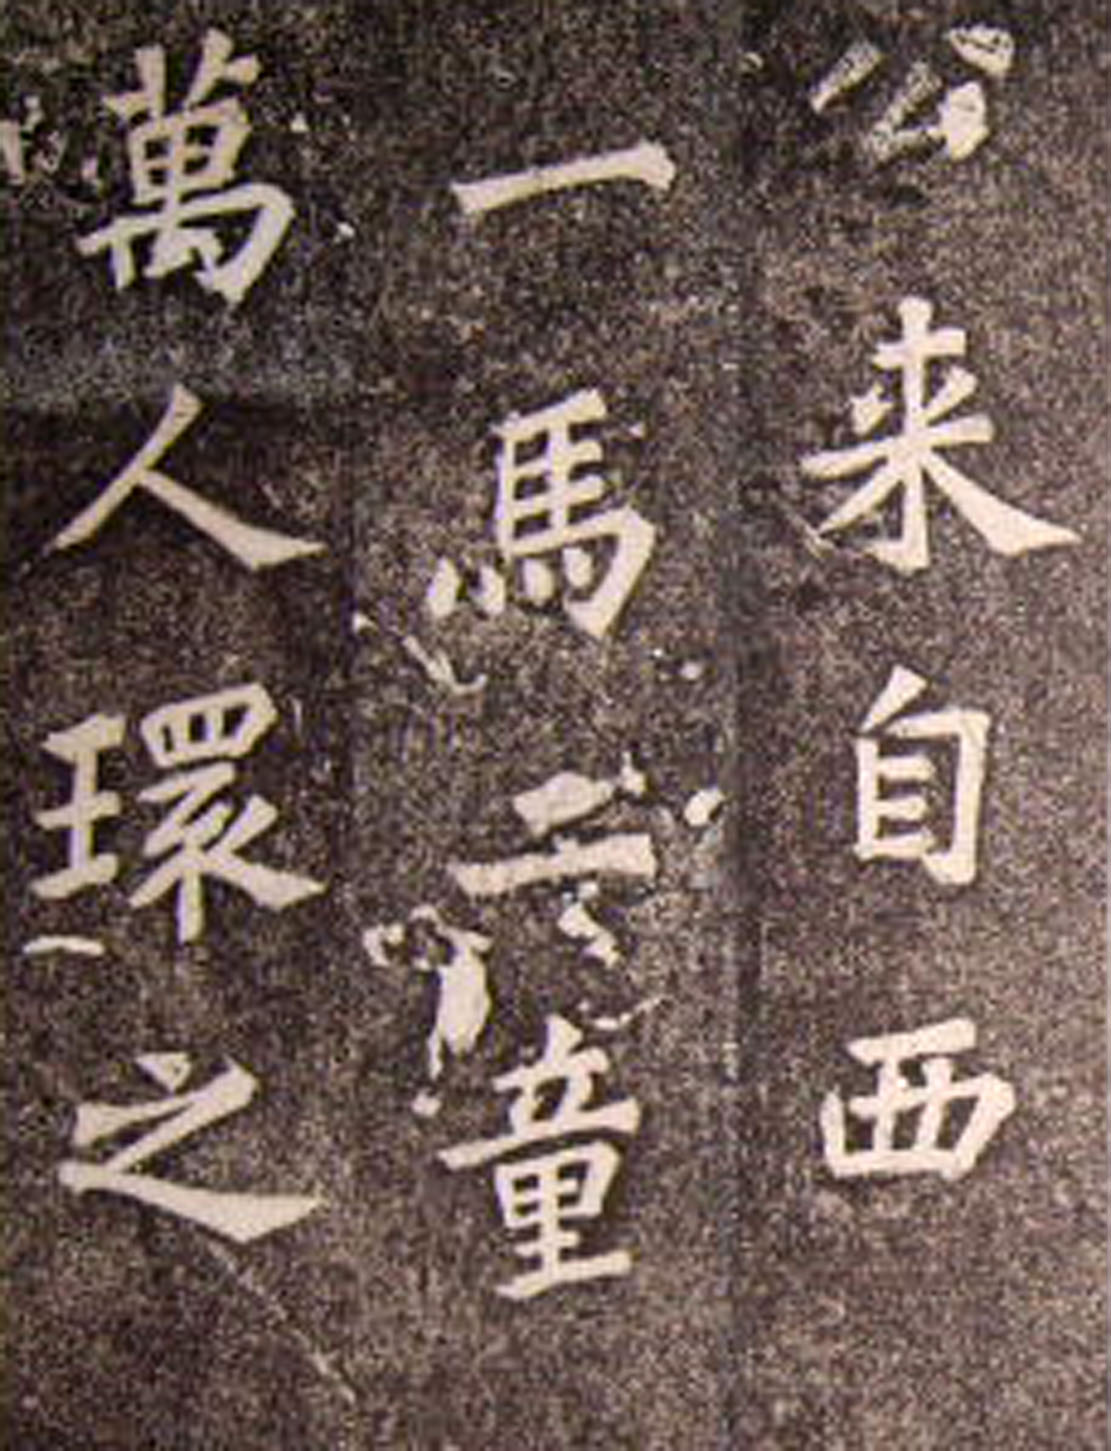 公来自西
一馬二童
萬人環之